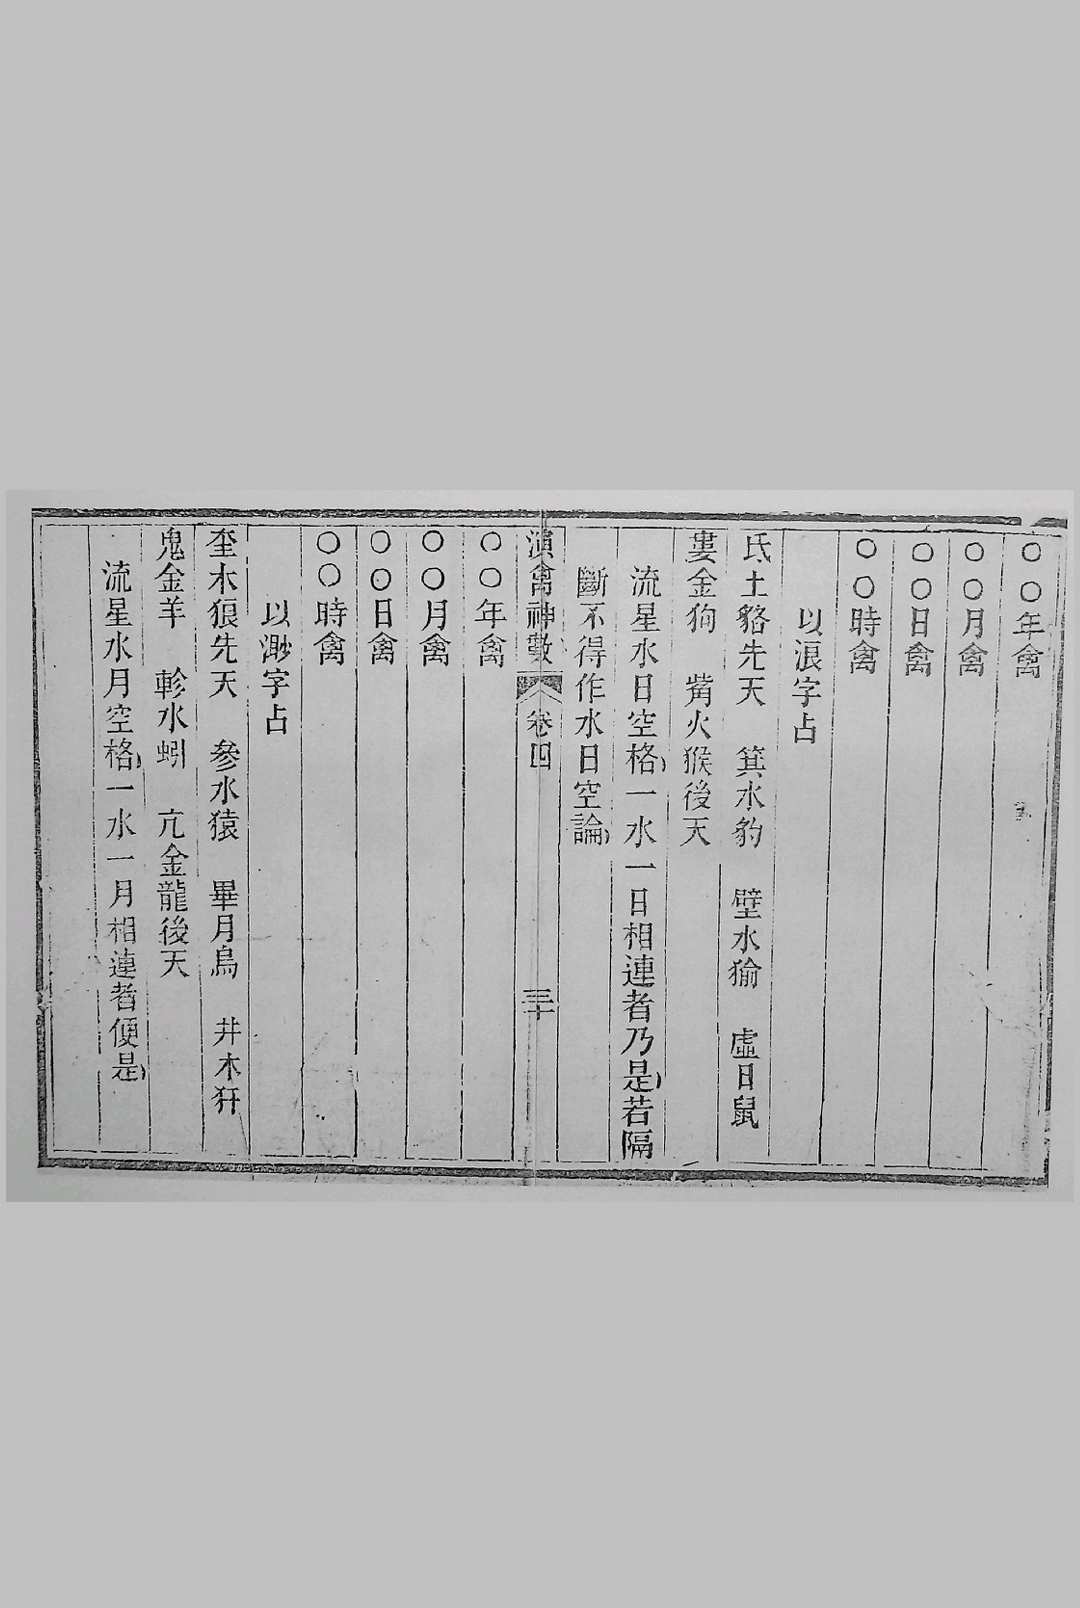 〇〇年禽
〇〇月禽
〇〇日禽
〇〇時禽
以浪字占
氐土貉先天　箕水豹　壁水㺄　虛日鼠
婁金狗　觜火猴後天
流星水日空格一水一日相連者乃是若隔
斷不得作水日空論
演禽神數　卷四　三十
〇〇年禽
〇〇月禽
〇〇日禽
〇〇時禽
以渺字占
奎木狼先天　參水猿　畢月烏　井木犴
鬼金羊　軫水蚓　亢金龍後天
流星水月空格一水一月相連者便是